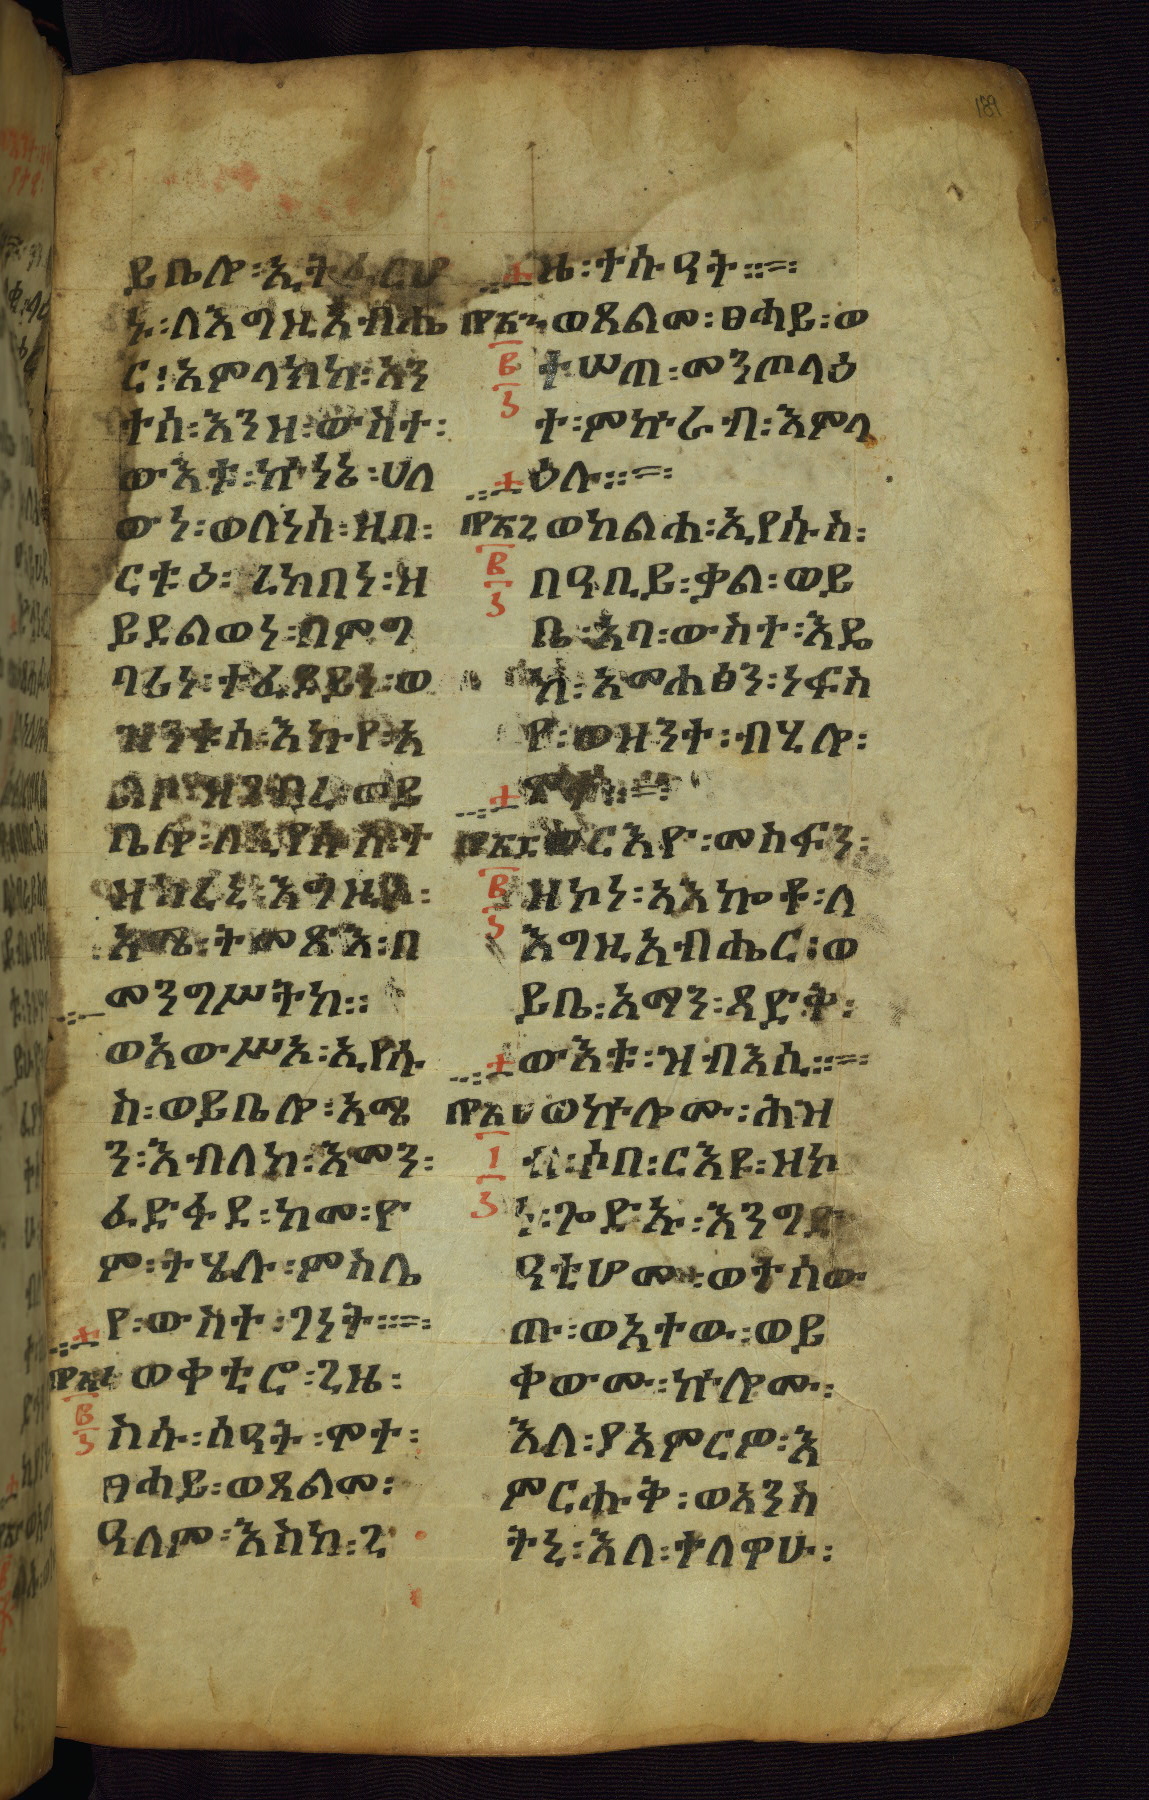 ይቤሎ፡ኢትፈርሆ
ኑ፡ለእግዚአብሔ
ር፡አምላክከ፡አን
ተሰ፡እንዘ፡ውስተ፡
ውእቱ፡ኵነኔ፡ሀለ
ውነ፡ወለነሰ፡ዘበ፡
ርቱዕ፡ረከበነ፡ዘ
ይደልወነ፡በምግ
ባሪነ፡ተፈደይነ፡ወ
ዝንቱሰ፡እኩየ፡አ
ልቦ፡ዘገብረ፡ወይ
ቤሎ፡ለኢየሱስ፡ተ
ዘከረኒ፡እግዚኦ፡
አመ፡ትመጽእ፡በ
መንግሥትከ።
ወአውሥአ፡ኢየሱ
ስ፡ወይቤሎ፡አማ
ን፡እብለከ፡አመን፡
ፈድፋደ፡ከመ፡ዮ
ም፡ትሄሉ፡ምስሌ
የ፡ውስተ፡ገነት።
ወቀቲሮ፡ጊዜ፡
ስሱ፡ሰዓት፡ሞተ፡
ፀሓይ፡ወጸልመ፡
ዓለም፡እስከ፡ጊ
ዜ፡ተሱዓት።
ወጸልመ፡ፀሓይ፡ወ
ተሠጠ፡መንጦላዕ
ተ፡ምኵራብ፡እምላ
ዕሉ።
ወከልሐ፡ኢየሱስ፡
በዓቢይ፡ቃል፡ወይ
ቤ፡አባ፡ውስተ፡እዴ
ከ፡አመሐፅን፡ነፍስ
የ፡ወዘንተ፡ብሂሎ፡
ሞተ።
ወርእዮ፡መስፍን፡
ዝኮነ፡አእኰቶ፡ለ
እግዚአብሔር፡ወ
ይቤ፡አማን፡ጻድቅ፡
ውእቱ፡ዝብእሲ።
ወኵሎሙ፡ሕዝ
ብ፡ሶበ፡ርእዩ፡ዘኮ
ነ፡ጐድኡ፡እንግድ
ዓቲሆሙ፡ወተሰው
ጡ፡ወአተው፡ወይ
ቀውሙ፡ኵሎሙ፡
እለ፡ያአምርዎ፡እ
ምርሑቅ፡ወአንስ
ትኒ፡እለ፡ተለዋሁ፡
189